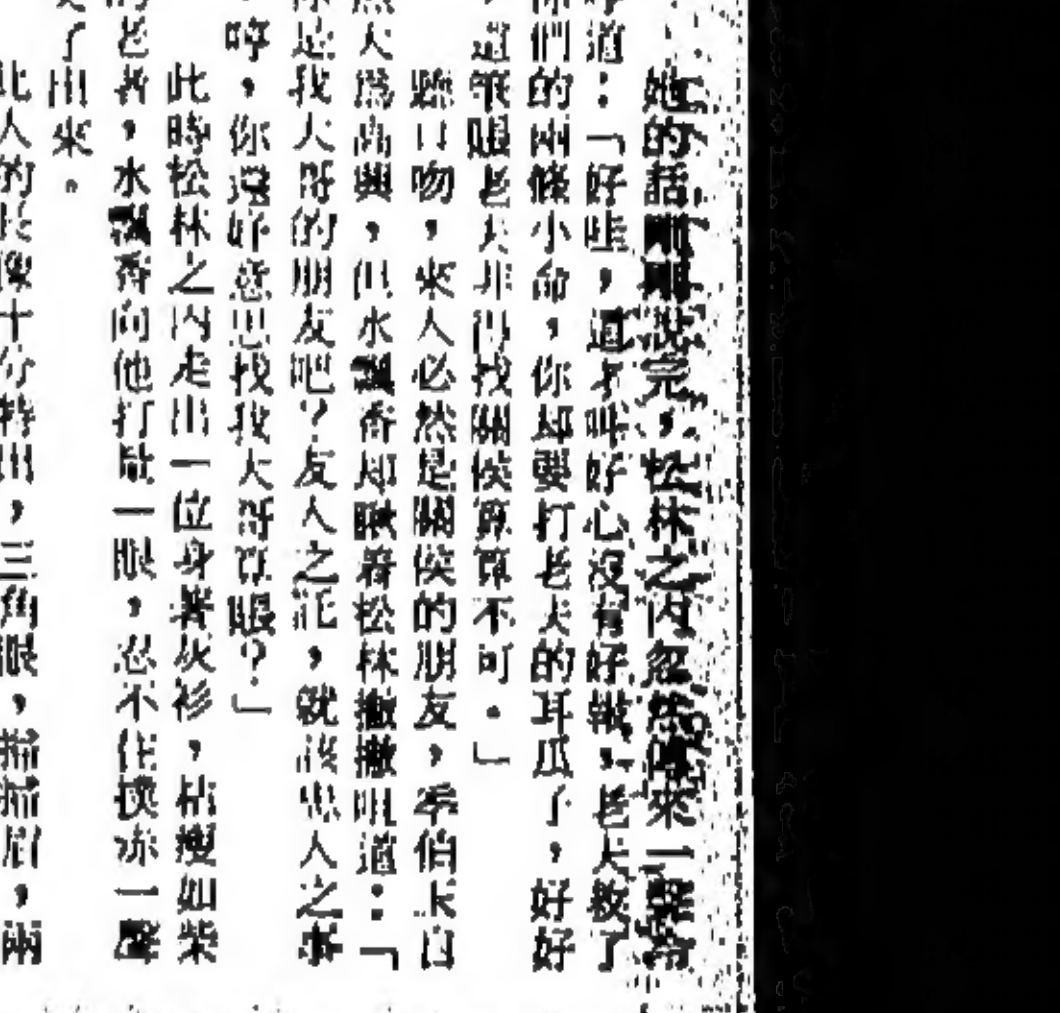 她的話剛剛說完，松林之內忽然傳來一聲冷
道：「好哇，這才叫好心沒有好報，老夫救了
你們的兩條小命，你却要打老夫的耳瓜子，好好
，這筆賬老夫非得找關侯算算不可。」
聽口吻，來人必然是關侯的朋友，季伯玉自
然大為高興，但水飄香却瞅着松林撇撇咀道：「
你是我大哥的朋友吧？友人之託，就該忠人之事
，哼，你還好意思找我大哥算賬？」
此時松林之內走出一位身著灰衫，枯瘦如柴
的老者，水飄香向他打量一眼，忍不住噗哧一聲
了出來。
此人的長像十分特出，三角眼，掃帚眉，兩